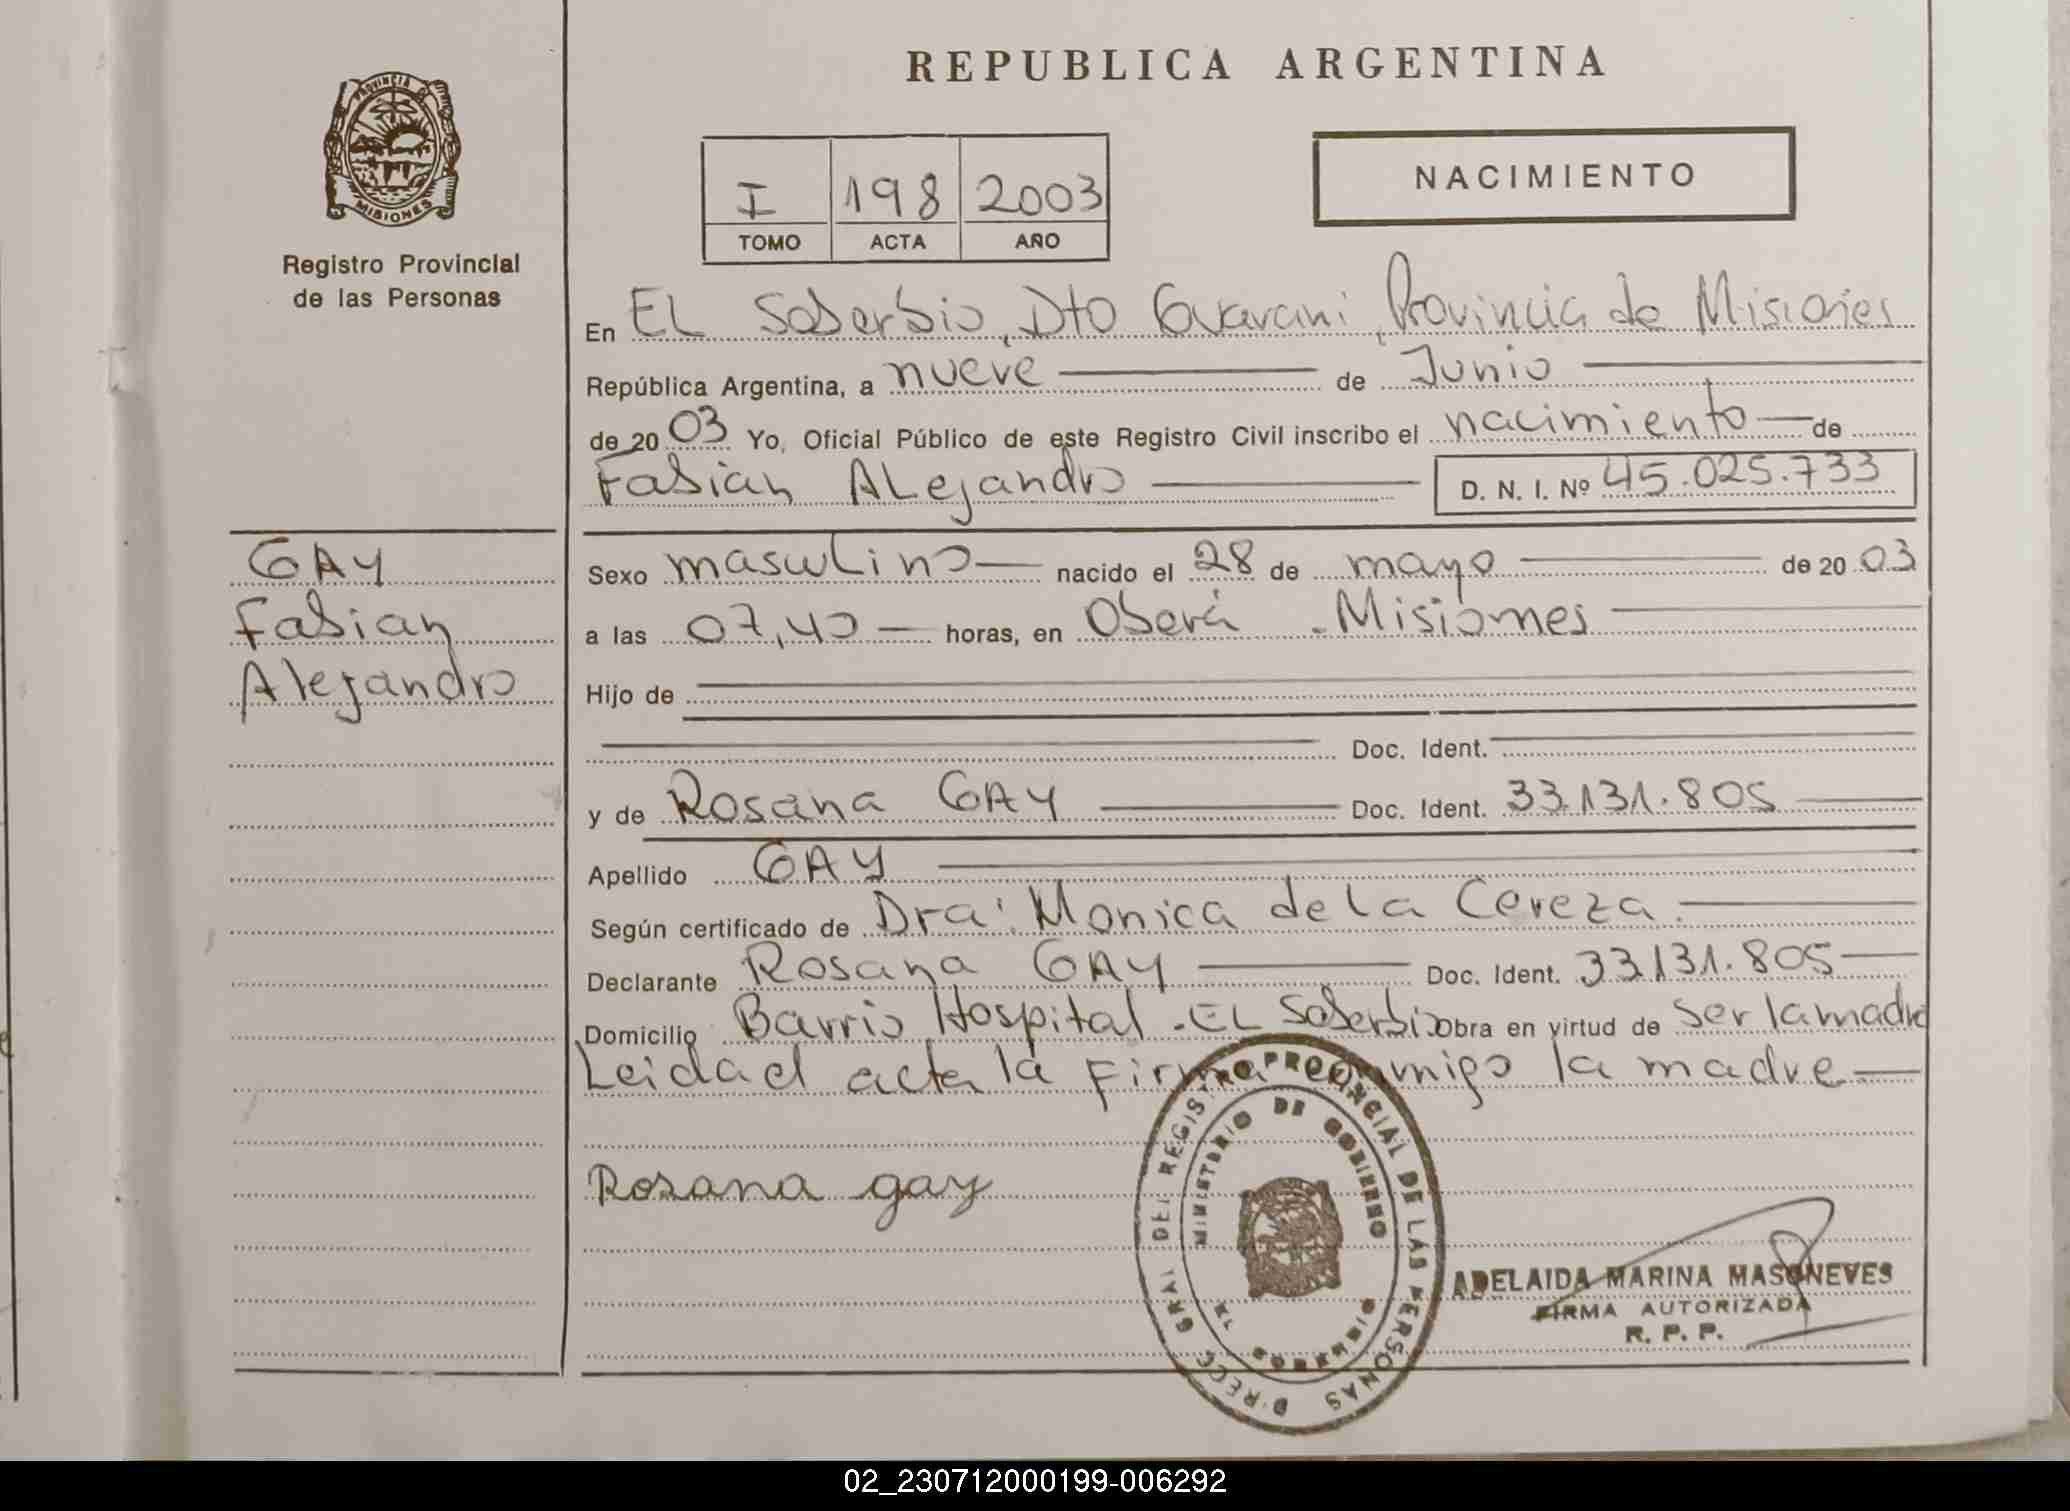 REPUBLICA ARGENTINA
PROVINCIA DE
MISIONES
Registro Provincial
de las Personas
I 198 2003
TOMO ACTA AÑO
NACIMIENTO
En EL Soberbio, Dto Guarani, Provincia de Misiones
República Argentina, a nueve de Junio
de 2003 Yo, Oficial Público de este Registro Civil inscribo el nacimiento de
Fabian Alejandro D. N. I. Nº 45.025.733
GAY
Fabian
Alejandro
Sexo masculino nacido el 28 de mayo de 2003
a las 07,40 horas, en Oberá - Misiones
Hijo de
Doc. Ident.
y de Rosana GAY Doc. Ident. 33.131.805
Apellido GAY
Según certificado de Dra: Monica de la Cereza.
Declarante Rosana GAY Doc. Ident. 33.131.805
Domicilio Barrio Hospital - EL Soberbio obra en virtud de ser la madre
Leida el acta la Firma conmigo la madre
Rosana gay
DIRECC GRAL DEL REGISTRO PROVINCIAL DE LAS PERSONAS
MINISTERIO DE GOBIERNO
MISIONES
ADELAIDA MARINA MASONEVES
FIRMA AUTORIZADA
R. P. P.
02_230712000199-006292